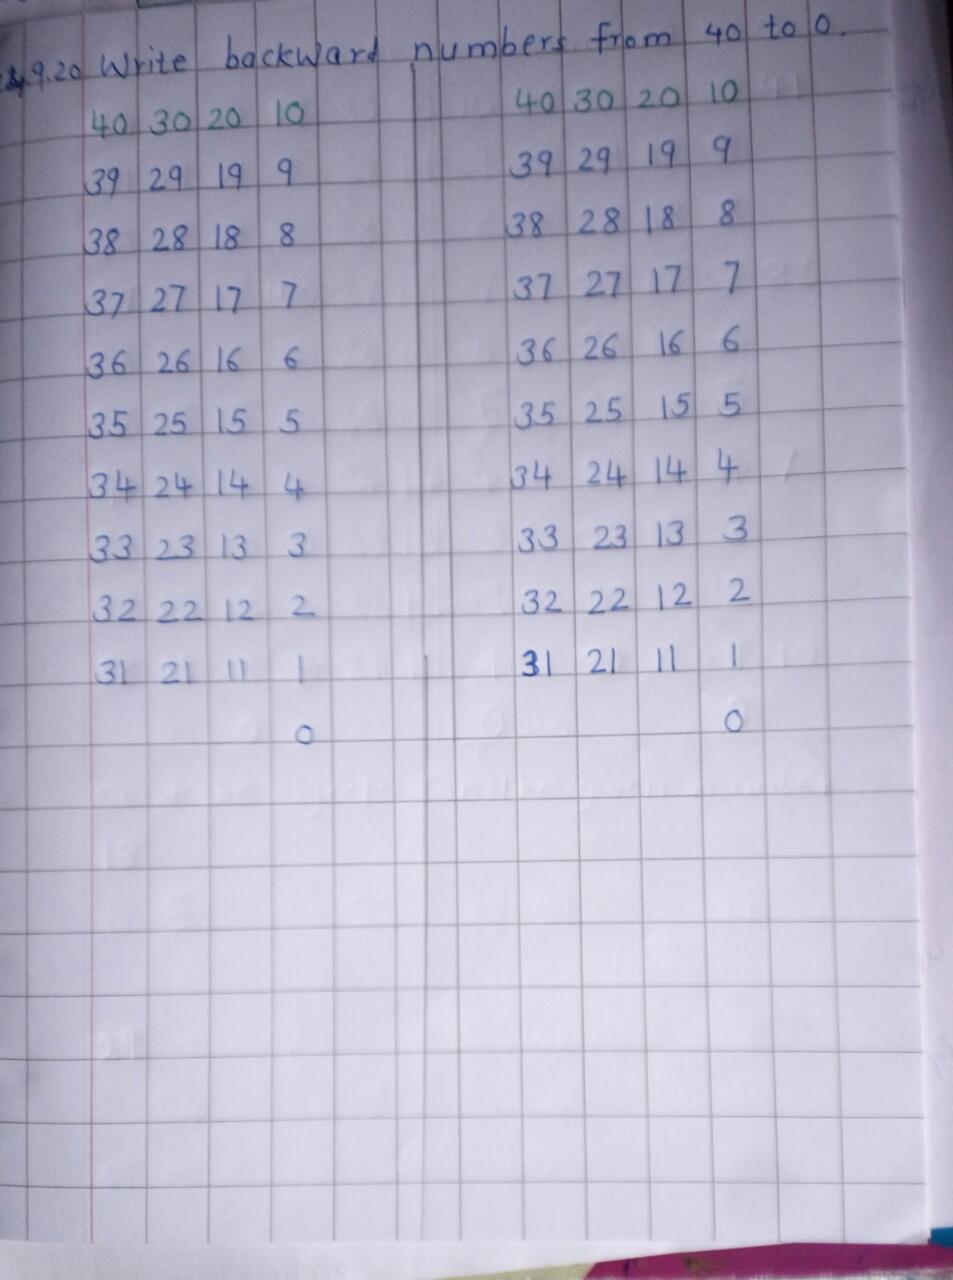 9.20 Write backward numbers from 40 to 0.
40 30 20 10 40 30 20 10
39 29 19 9 39 29 19 9
38 28 18 8 38 28 18 8
37 27 17 7 37 27 17 7
36 26 16 6 36 26 16 6
35 25 15 5 35 25 15 5
34 24 14 4 34 24 14 4
33 23 13 3 33 23 13 3
32 22 12 2 32 22 12 2
31 21 11 1 31 21 11 1
0 0